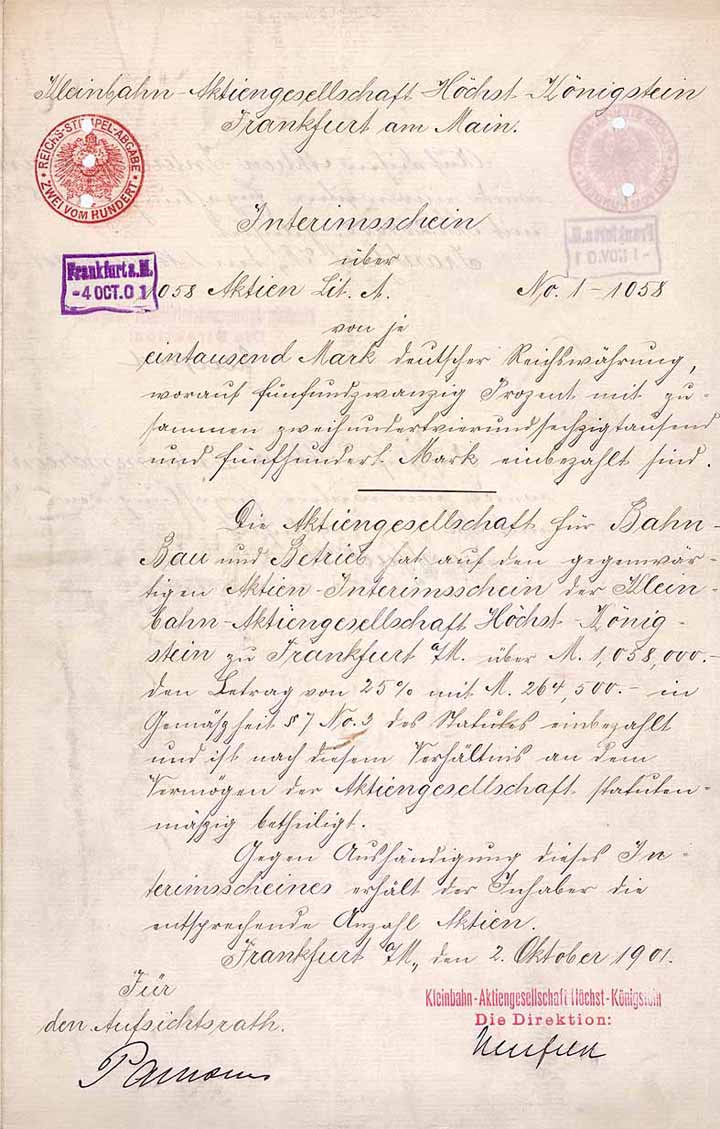 Kleinbahn-Aktiengesellschaft Höchst-Königstein
Frankfurt am Main.
REICHS-STEMPEL-ABGABE
ZWEI VOM HUNDERT
Interimsschein
über
Frankfurt a. M.
-4 OCT. 0 1
-1 NOV. 0 1
1058 Aktien Lit. A. No. 1-1058
von je
eintausend Mark deutscher Reichswährung,
worauf fünfundzwanzig Prozent mit zu-
sammen zweihundertvierundsechzigtausend
und fünfhundert Mark einbezahlt sind.
Die Aktiengesellschaft für Bahn-
Bau und Betrieb hat auf den gegenwär-
tigen Aktien-Interimsschein der Klein-
bahn-Aktiengesellschaft Höchst-König-
stein zu Frankfurt a/M. über M. 1,058,000.-
den Betrag von 25% mit M. 264,500.- in
Gemäßheit § 7 No. 3 des Statutes einbezahlt
und ist nach diesem Verhältnis an dem
Vermögen der Aktiengesellschaft statuten-
mäßig betheiligt.
Gegen Aushändigung dieses In-
terimsscheines erhält der Inhaber die
entsprechende Anzahl Aktien.
Frankfurt a/M., den 2. Oktober 1901.
Für
den Aufsichtsrath.
Kleinbahn-Aktiengesellschaft Höchst-Königstein
Die Direktion: